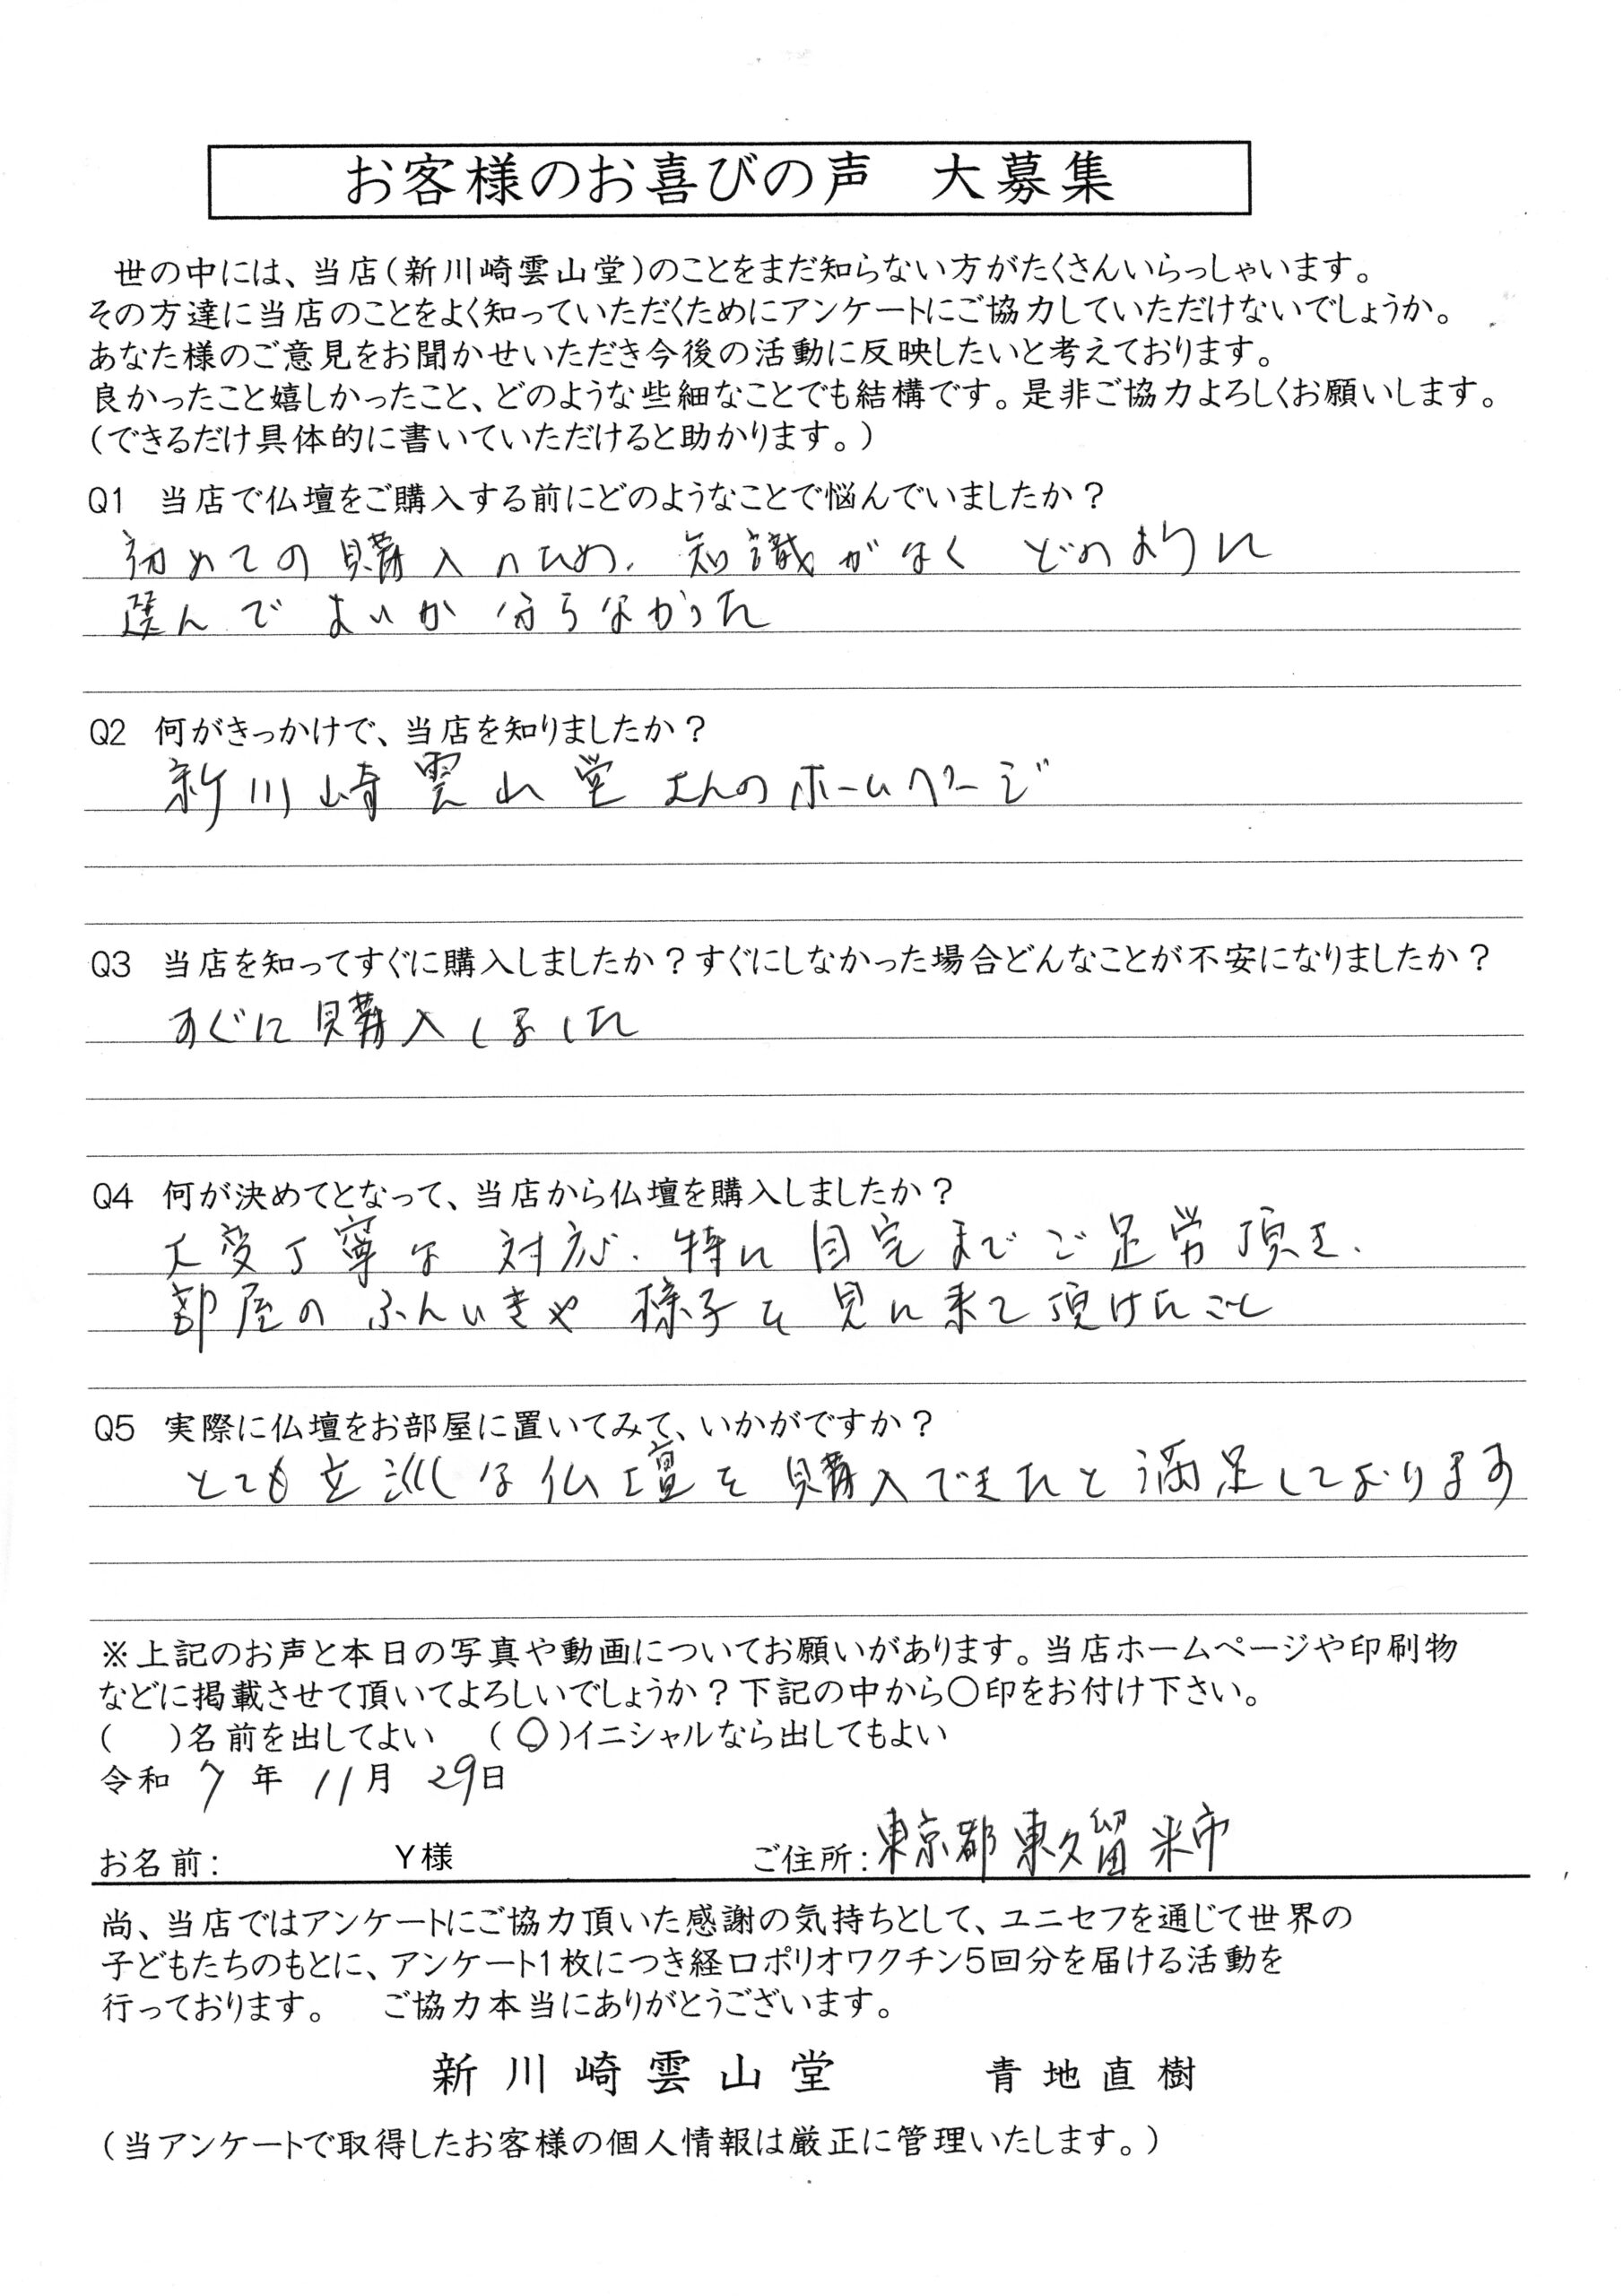 お客様のお喜びの声　大募集
世の中には、当店(新川崎雲山堂)のことをまだ知らない方がたくさんいらっしゃいます。
その方達に当店のことをよく知っていただくためにアンケートにご協力していただけないでしょうか。
あなた様のご意見をお聞かせいただき今後の活動に反映したいと考えております。
良かったこと嬉しかったこと、どのような些細なことでも結構です。是非ご協力よろしくお願いします。
(できるだけ具体的に書いていただけると助かります。)
Q1　当店で仏壇をご購入する前にどのようなことで悩んでいましたか？
初めての購入のため、知識がなく どのように
選んで よいか 分らなかった
Q2　何がきっかけで、当店を知りましたか？
新川崎雲山堂さんのホームページ
Q3　当店を知ってすぐに購入しましたか？すぐにしなかった場合どんなことが不安になりましたか？
すぐに購入しました
Q4　何が決めてとなって、当店から仏壇を購入しましたか？
大変丁寧な 対応、特に自宅までご足労頂き、
部屋の ふんいきや 様子を見に来て頂けたこと
Q5　実際に仏壇をお部屋に置いてみて、いかがですか？
とても立派な仏壇を購入できたと満足しております
※上記のお声と本日の写真や動画についてお願いがあります。当店ホームページや印刷物
などに掲載させて頂いてよろしいでしょうか？下記の中から〇印をお付け下さい。
(　)名前を出してよい　(〇)イニシャルなら出してもよい
令和 7 年 11月 29日
お名前:　Y様　ご住所:東京都東久留米市
尚、当店ではアンケートにご協力頂いた感謝の気持ちとして、ユニセフを通じて世界の
子どもたちのもとに、アンケート1枚につき経口ポリオワクチン5回分を届ける活動を
行っております。　ご協力本当にありがとうございます。
新川崎雲山堂　青地直樹
(当アンケートで取得したお客様の個人情報は厳正に管理いたします。)